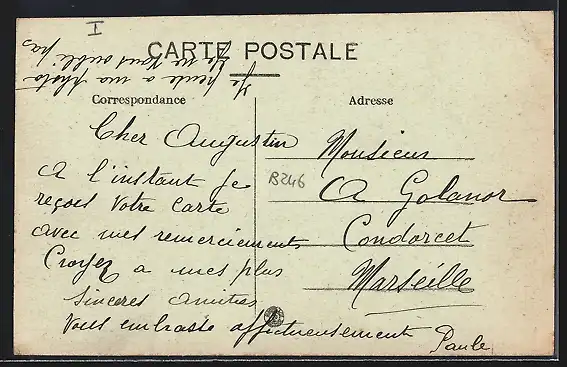 I
CARTE POSTALE
Correspondance
Adresse
Cher Augustin
A l'instant je
reçois votre carte
avec mes remerciements
Croyez a mes plus
sinceres amities
Vous embrasse affectueusement
Paule
B246
Monsieur
A Golanor
Condorcet
Marseille
Je pense a ma photo
Je ne vous oubli pas